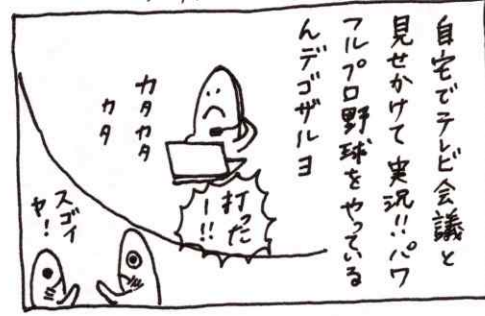 自宅でテレビ会議と
見せかけて実況!!パワ
フルプロ野球をやっている
んデゴザルヨ
カタカタ
カタ
打った
ー!!
スゴイ
ヤ!